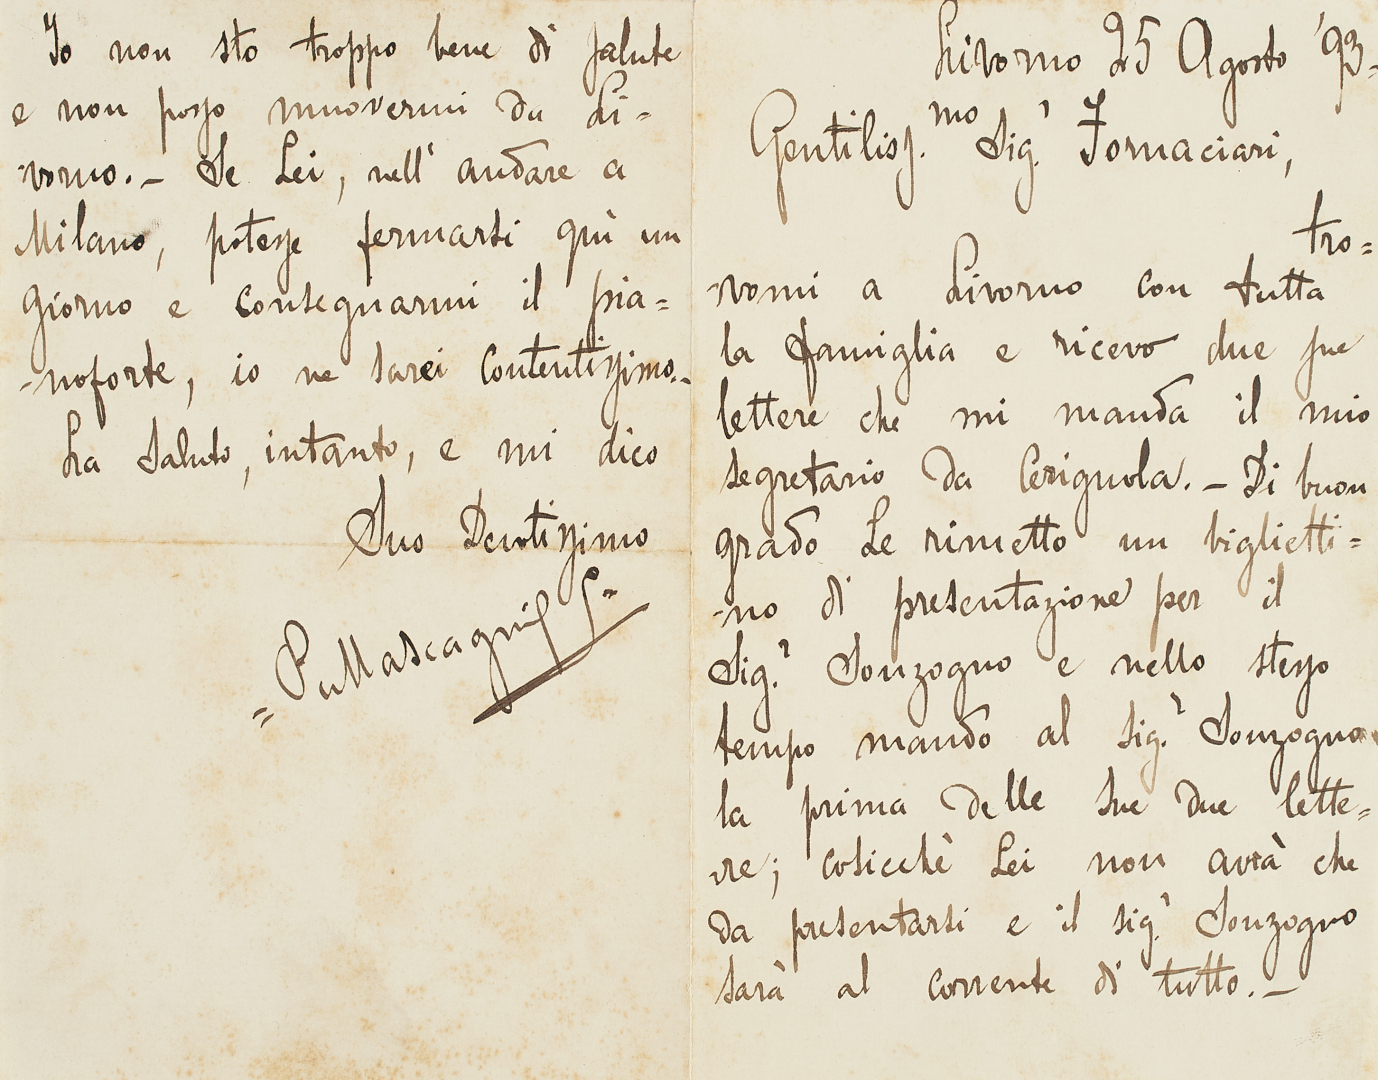 Livorno 25 Agosto '93-
Gentiliss.mo Sig.r Fornaciari,
tro=
-vomi a Livorno con tutta
la famiglia e ricevo due sue
lettere che mi manda il mio
segretario da Cerignola. - Di buon
grado Le rimetto un biglietti=
-no di presentazione per il
Sig.r Sonzogno e nello stesso
tempo mando al sig.r Sonzogno
la prima delle sue due lette=
re; cosicchè Lei non avrà che
da presentarsi e il sig.r Sonzogno
sarà al corrente di tutto. -
Io non sto troppo bene di salute
e non posso muovermi da Li=
vorno. - Se Lei, nell'andare a
Milano, potesse fermarsi quì un
giorno e consegnarmi il pia=
-noforte, io ne sarei contentissimo. -
La saluto, intanto, e mi dico
Suo Devotissimo
= PMascagni =